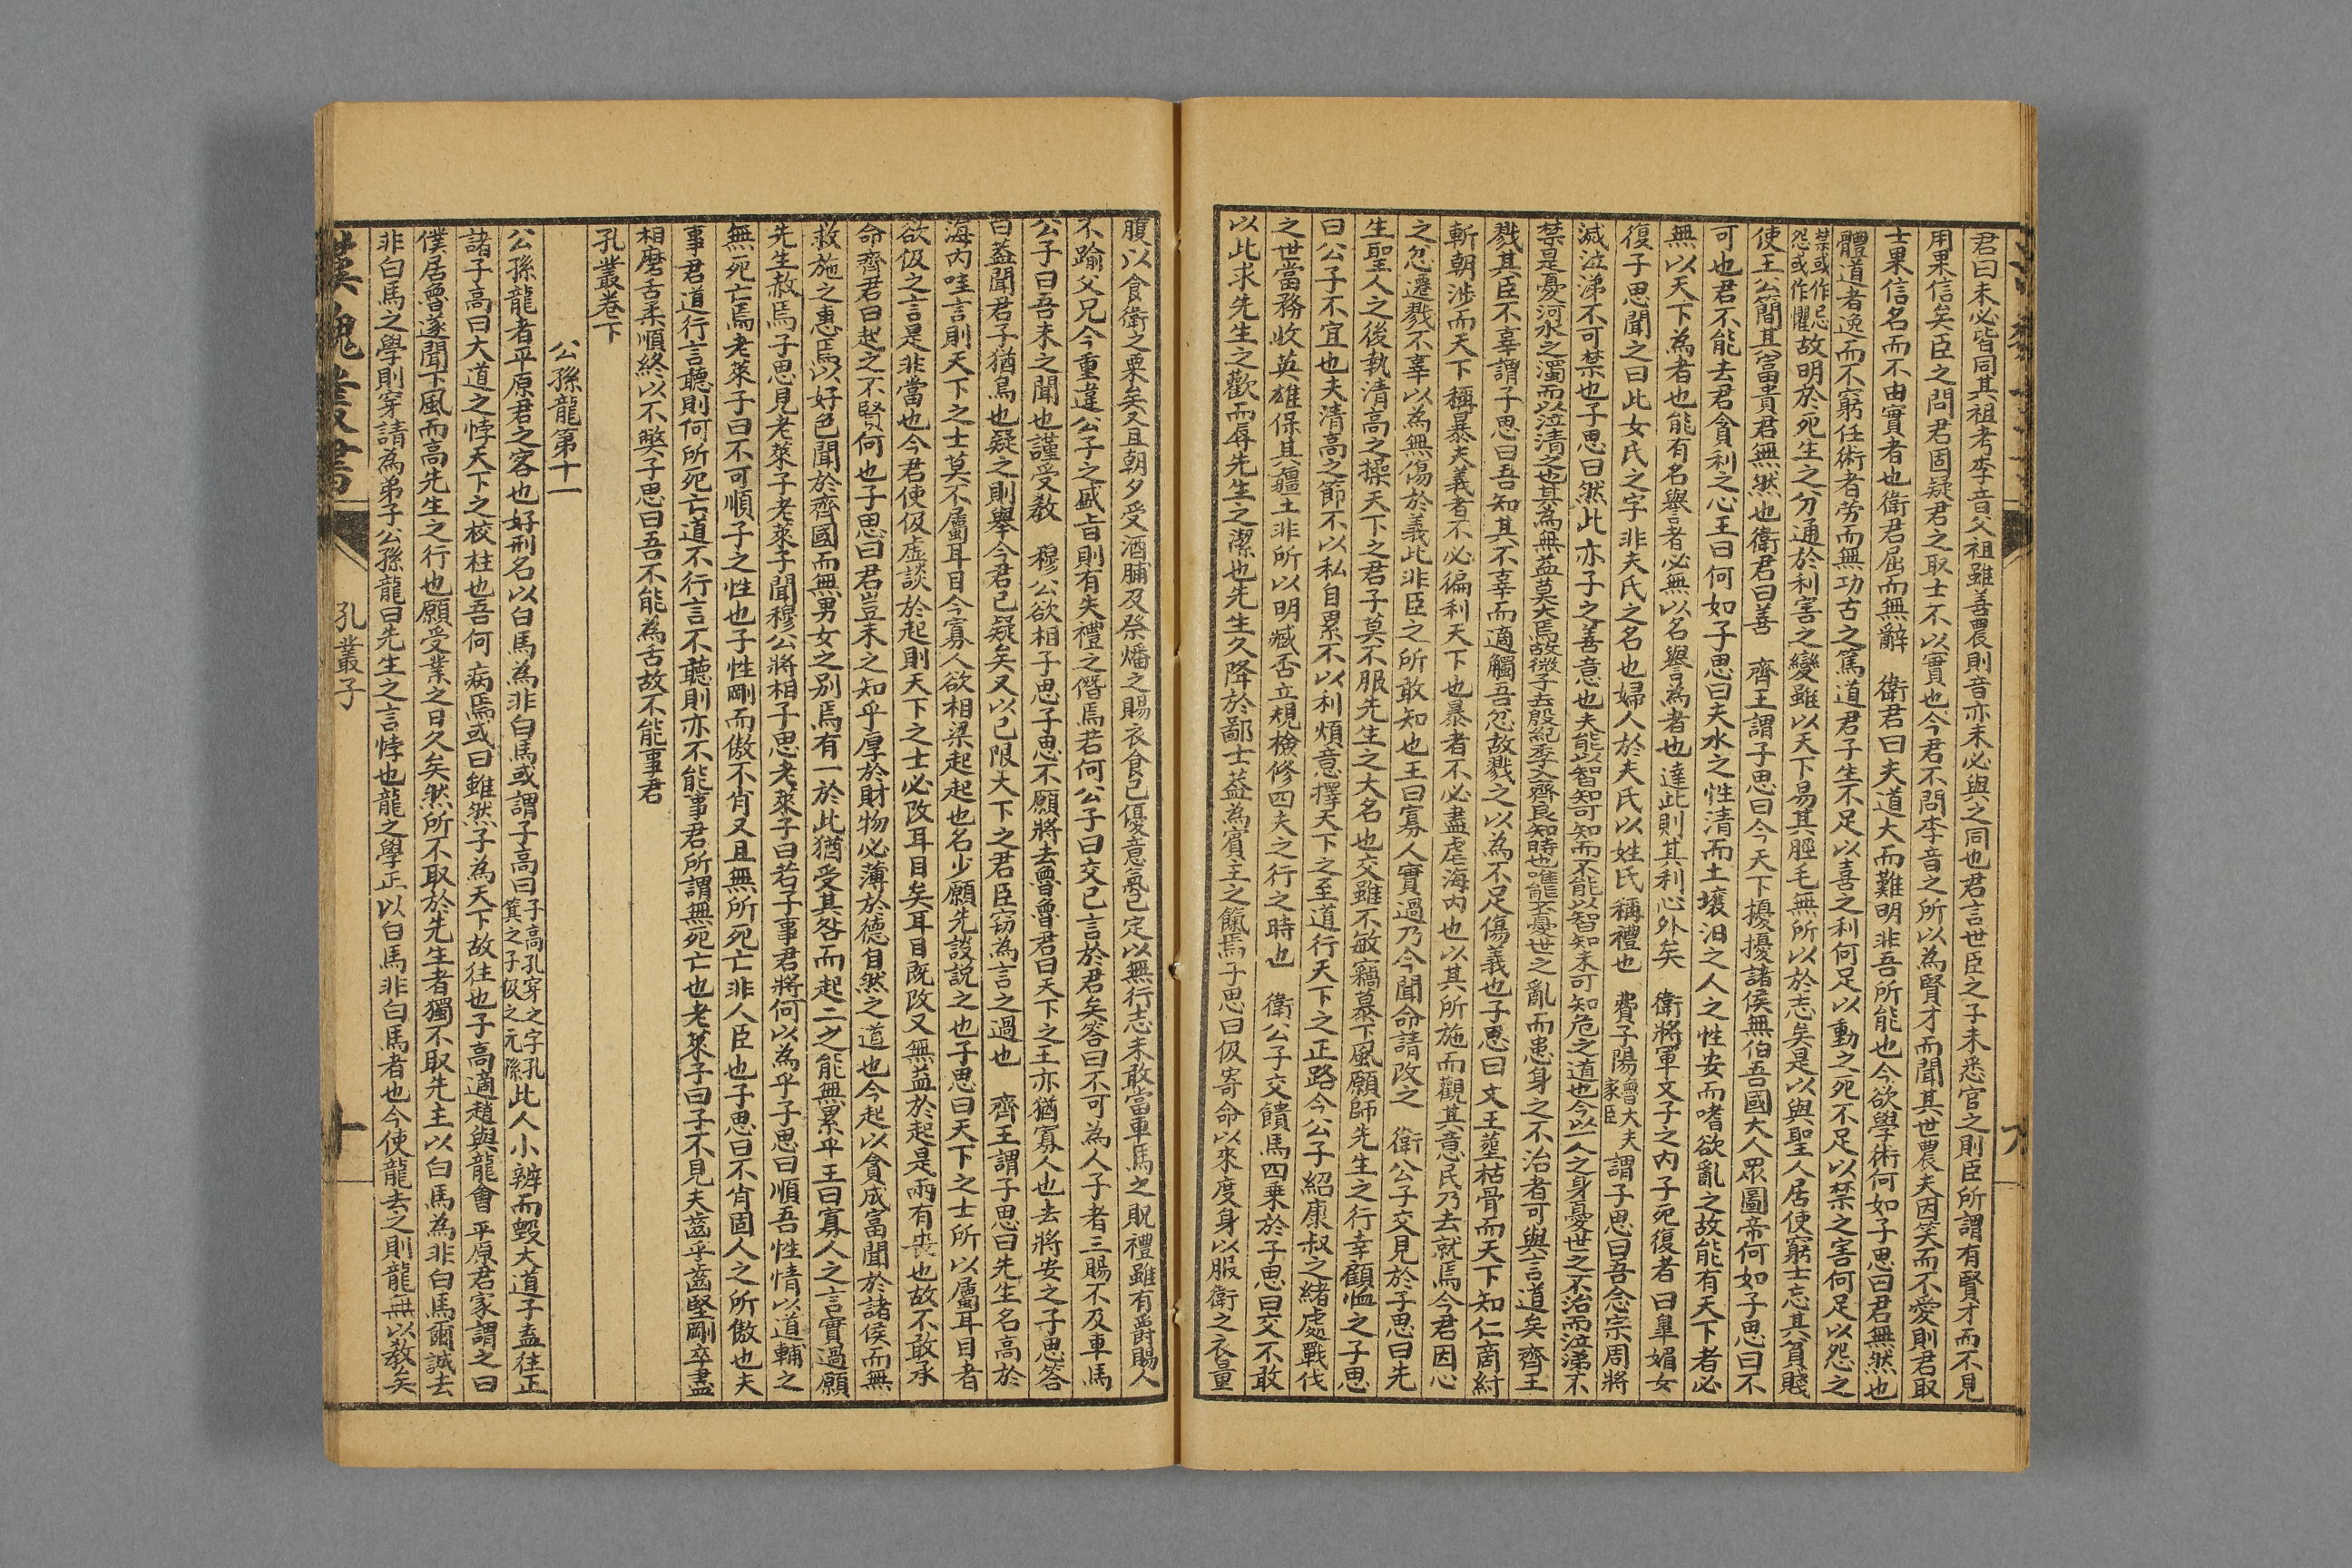 君曰未必皆同其祖考李音父祖雖善農則音亦未必與之同也君言世臣之子未悉官之則臣所謂有賢才而不見
用果信矣臣之問君固疑君之取士不以實也今君不問李音之所以為賢才而聞其世農夫因笑而不愛則君取
士果信名而不由實者也衛君屈而無辭　衛君曰夫道大而難明非吾所能也今欲學術何如子思曰君無然也
體道者逸而不窮任術者勞而無功古之篤道君子生不足以喜之利何足以動之死不足以禁之害何足以怨之
禁或作忌怨或作懼故明於死生之分通於利害之變雖以天下易其脛毛無所以於志矣是以與聖人居使窮士忘其貧賤
使王公簡其富貴君無然也衛君曰善　齊王謂子思曰今天下擾擾諸侯無伯吾國大人眾圖帝何如子思曰不
可也君不能去君貪利之心王曰何如子思曰夫水之性清而土壤汩之人之性安而嗜欲亂之故能有天下者必
無以天下為者也能有名譽者必無以名譽為者也達此則其利心外矣　衛將軍文子之內子死復者曰臯媚女
復子思聞之曰此女氏之字非夫氏之名也婦人於夫氏以姓氏稱禮也　費子陽魯大夫家臣謂子思曰吾念宗周將
滅泣涕不可禁也子思曰然此亦子之善意也夫能以智知可知而不能以智知未可知危之道也今以一人之身憂世之不治而泣涕不
禁是憂河水之濁而以泣清之也其為無益莫大焉故微子去殷紀季入齊良知時也唯能不憂世之亂而患身之不治者可與言道矣齊王
戮其臣不辜謂子思曰吾知其不辜而適觸吾忿故戮之以為不足傷義也子思曰文王塟枯骨而天下知仁商紂
斬朝涉而天下稱暴夫義者不必徧利天下也暴者不必盡虐海內也以其所施而觀其意民乃去就焉今君因心
之忿遷戮不辜以為無傷於義此非臣之所敢知也王曰寡人實過乃今聞命請改之　衛公子交見於子思曰先
生聖人之後執清高之操天下之君子莫不服先生之大名也交雖不敏竊慕下風願師先生之行幸顧恤之子思
曰公子不宜也夫清高之節不以私自累不以利煩意擇天下之至道行天下之正路今公子紹康叔之緒處戰伐
之世當務收英雄保其疆土非所以明臧否立規檢修匹夫之行之時也　衛公子交饋馬四乘於子思曰交不敢
以此求先生之歡而辱先生之潔也先生久降於鄙土益為賓主之餼焉子思曰伋寄命以來度身以服衛之衣量
腹以食衛之粟矣又且朝夕受酒脯及祭燔之賜衣食已優意氣已定以無行志未敢當車馬之貺禮雖有爵賜人
不踰父兄今重違公子之盛旨則有失禮之僭焉若何公子曰交已言於君矣答曰不可為人子者三賜不及車馬
公子曰吾未之聞也謹受教　穆公欲相子思子思不願將去魯魯君曰天下之王亦猶寡人也去將安之子思答
曰蓋聞君子猶鳥也疑之則舉今君已疑矣又以己限天下之君臣窃為言之過也　齊王謂子思曰先生名高於
海內哇言則天下之士莫不屬耳目今寡人欲相梁起起也名少願先談說之也子思曰天下之士所以屬耳目者
欲伋之言是非當也今君使伋虛談於起則天下之士必改耳目矣耳目既改又無益於起是兩有喪也故不敢承
命齊君曰起之不賢何也子思曰君豈未之知乎厚於財物必薄於德自然之道也今起以貪成富聞於諸侯而無
救施之惠焉以好色聞於齊國而無男女之別焉有一於此猶受其咎而起二之能無累乎王曰寡人之言實過願
先生赦焉子思見老萊子老萊子聞穆公將相子思老萊子曰若子事君將何以為乎子思曰順吾性情以道輔之
無死亡焉老萊子曰不可順子之性也子性剛而傲不肖又且無所死亡非人臣也子思曰不肖固人之所傲也夫
事君道行言聽則何所死亡道不行言不聽則亦不能事君所謂無死亡也老萊子曰子不見夫齒乎齒堅剛卒盡
相磨舌柔順終以不弊子思曰吾不能為舌故不能事君
孔叢卷下
公孫龍第十一
公孫龍者平原君之客也好刑名以白馬為非白馬或謂子高曰子高孔穿之字孔箕之子伋之元孫此人小辨而毀大道子盍往正
諸子高曰大道之悖天下之校柱也吾何病焉或曰雖然子為天下故往也子高適趙與龍會平原君家謂之曰
僕居魯遂聞下風而高先生之行也願受業之日久矣然所不取於先生者獨不取先主以白馬為非白馬爾誠去
非白馬之學則穿請為弟子公孫龍曰先生之言悖也龍之學正以白馬非白馬者也今使龍去之則龍無以教矣
漢魏叢書
孔叢子
十